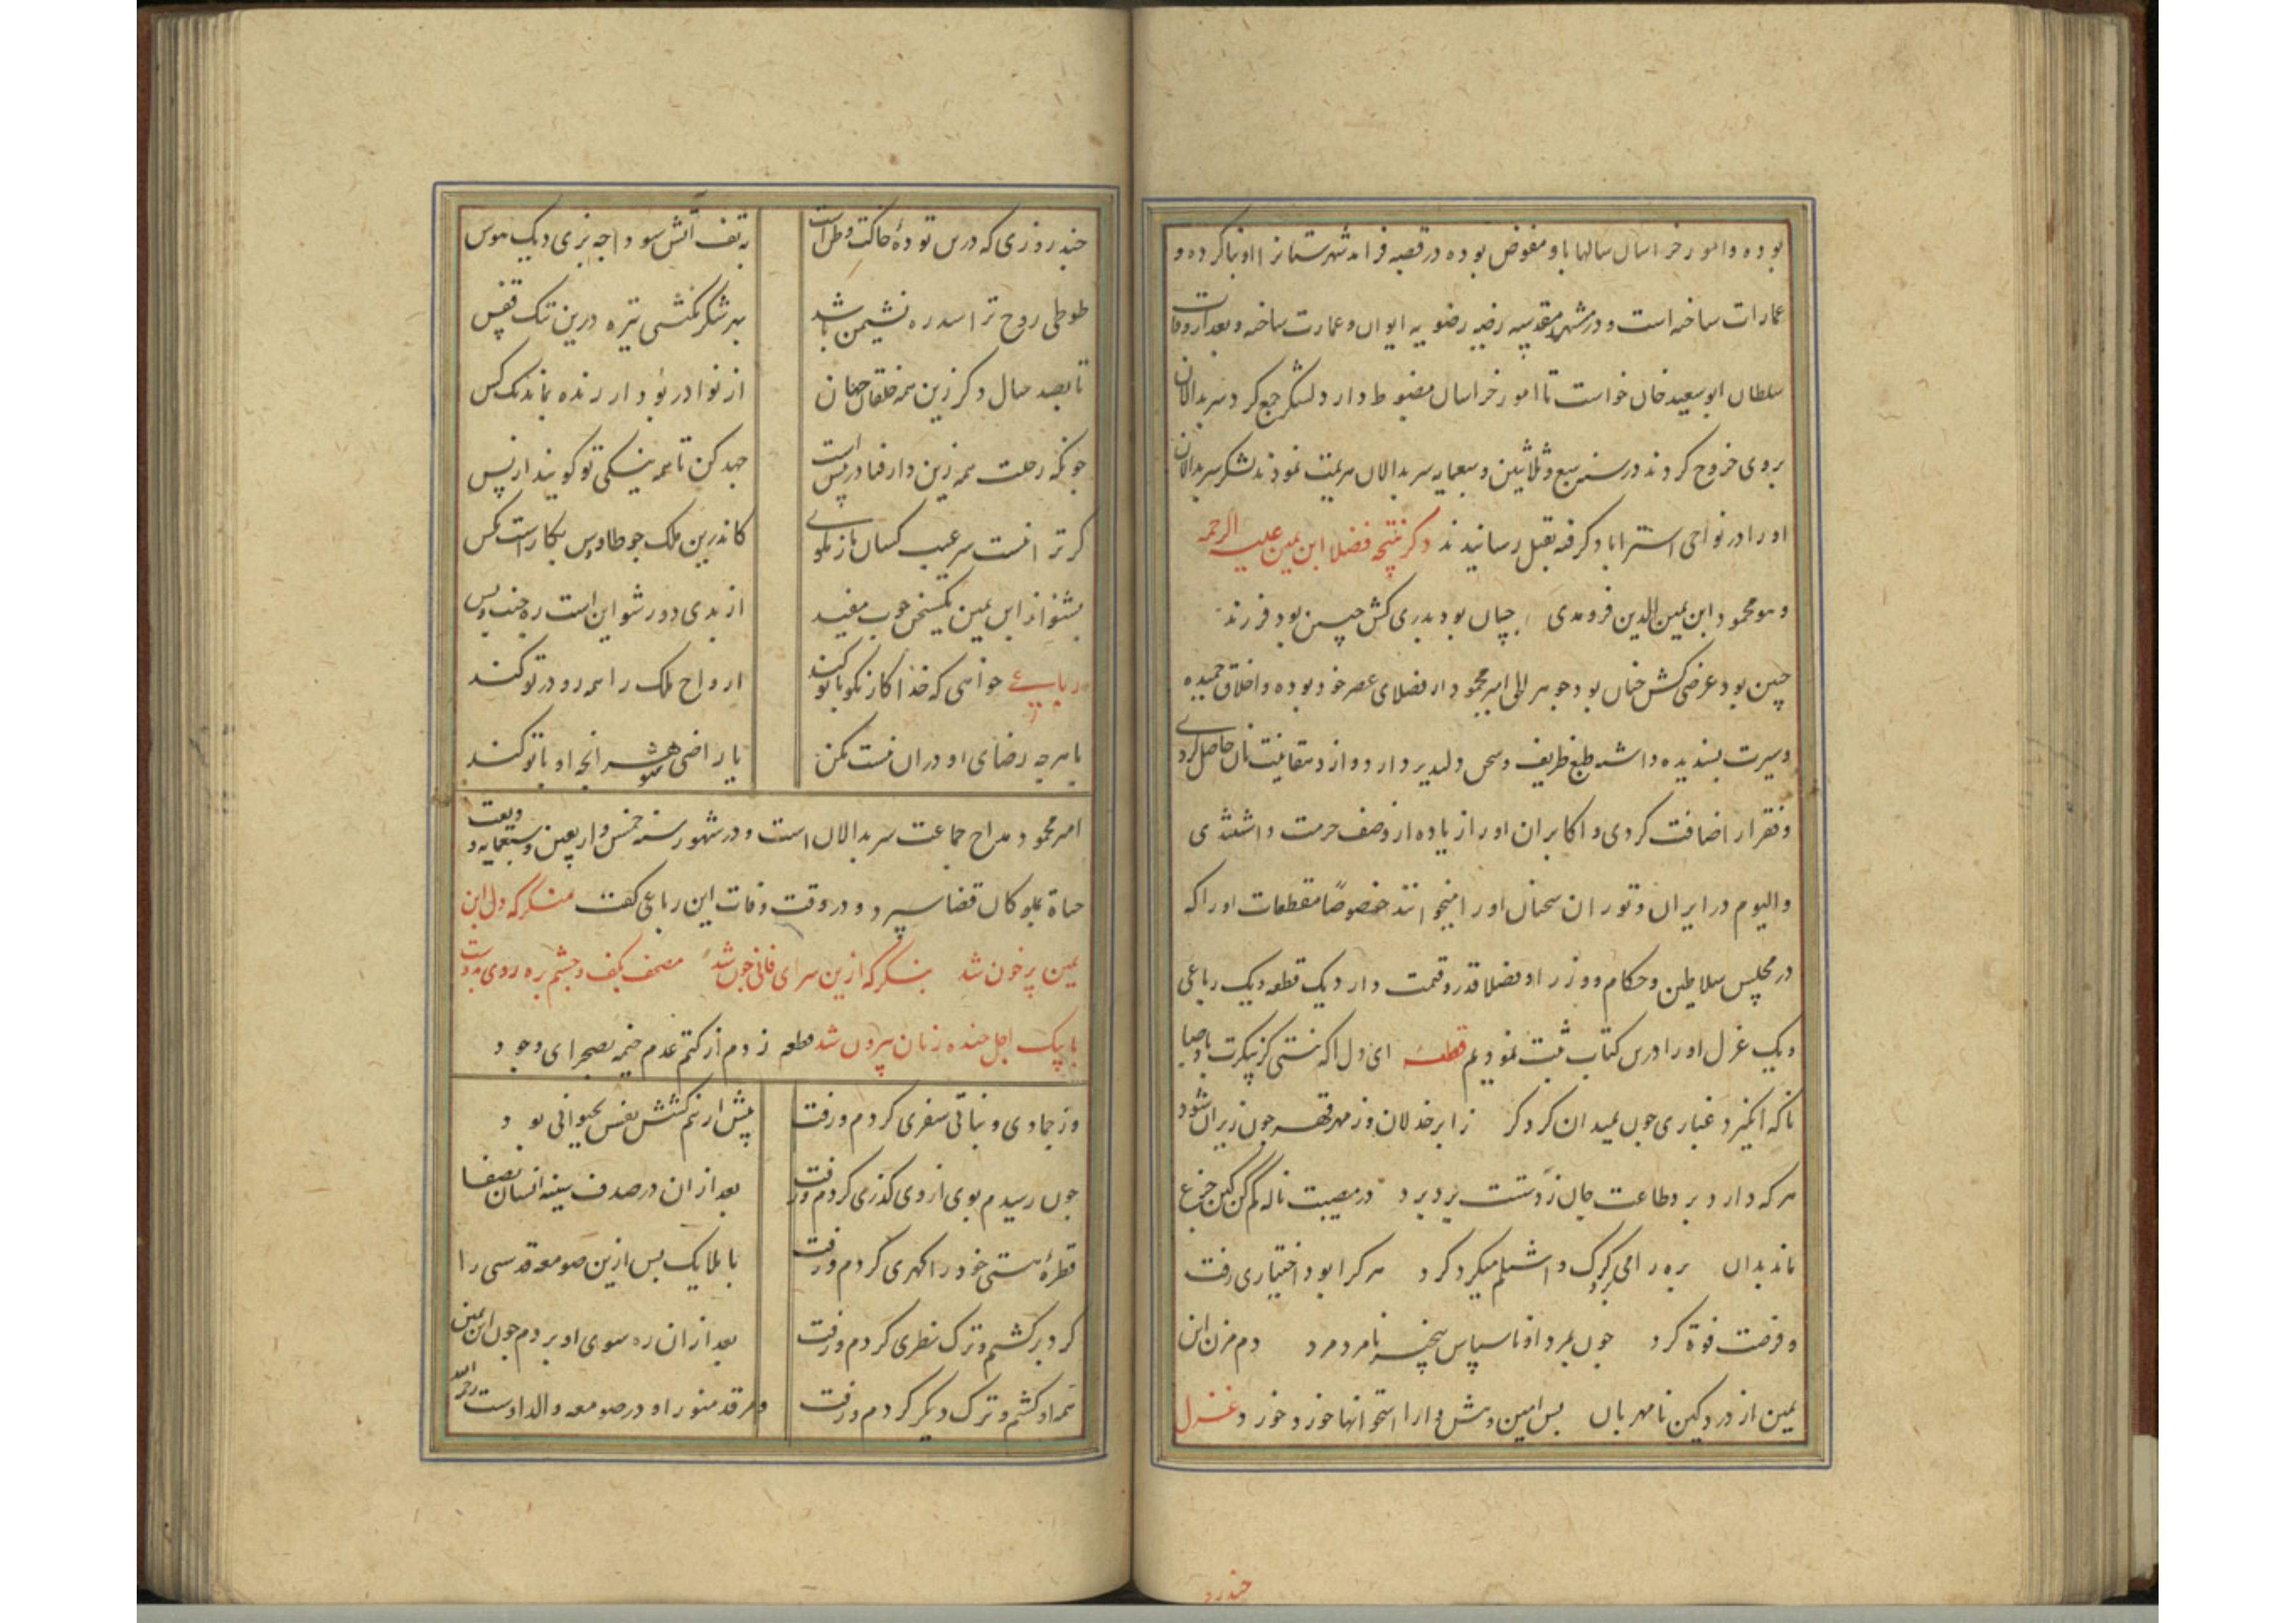 بوده و امور خراسان سالها باو مفوض بوده در قصبه فراند شهرستانرا او بنا کرده و
عمارات ساخته است و در مشهد مقدسه رضیه رضویه ایوان و عمارت ساخته و بعد از وفات
سلطان ابوسعید خان خواست تا امور خراسان مضبوط دارد لشکر جمع کرد سربدالان
بروی خروج کردند در سنه سبع و ثلاثین و سبعمایه سربدالان هزیمت نمودند لشکر سربدالان
او را در نواحی استراباد گرفته بقتل رسانیدند ذکر فضلا ابن یمین علیه الرحمه
و هو محمود ابن یمین الدین فرومدی چنان بود پدری کش چنین بود فرزند
چنین بود عرضی کش چنان بود جوهر امیر محمود از فضلای عصر خود بوده و اخلاق حمیده
و سیرت پسندیده داشته طبع ظریف و سخن دلپذیر دارد و از دهقانیت نان حاصل کردی
و فقرا را ضیافت کردی و اکابران او را زیاده از وصف حرمت داشتندی
و الیوم در ایران و توران سخنان او را میخوانند خصوصاً مقطعات او را که
در مجلس سلاطین و حکام و وزرا و فضلا قدر و قیمت دارد یک قطعه و یک رباعی
و یک غزل او را درین کتاب ثبت نمودیم قطعه ای دل
ناگه انگیزد غباری چون بمیدان کرد کرد ز ابر خذلان و ز مهر قهر چون زیران شود
هر که دارد برد طاعت جان ز دستت برد برد در مصیبت ناله کم کن کین جزع
ماند بدان بره را می گرگ و اشتلم میکرد کرد هر کرا بود اختیاری رفت
و فرصت فوة کرد چون بمرد او ناسپاس نامرد مرد دم مزن ابن
یمین از درد کین نامهربان بس امین وش دارا استخوانها خورد خورد غزل
چند رو
چند روزی که درین توده خاکت وطن است به تف آتش سودا چه پزی دیک هوس
طوطی روح ترا سدره نشیمن باشد بهر شکر نکشی تیره درین تنک قفس
تا بصد سال دکر زین همه خلقان جهان از نوادر بود ار زنده بماند یک کس
چونکه رحلت همه زین دار فنا در پیش است جهد کن تا همه بنیکی تو کویند از پس
کر ترا نیست سر عیب کسان باز مکوی کاندرین ملک چو طاوس بکار است مکس
بشنو از ابن یمین یک سخن خوب مفید از بدی دور شو این است ره جنت و بس
رباعی خواهی که خدا کار نکو با تو کند ارواح ملک را همه رو در تو کند
یا هر چه رضای او در آن نیست مکن یا راضی شو هر انچه او با تو کند
امیر محمود مداح جماعت سربدالان است و در شهور سنه خمس و اربعین و سبعمایه ودیعت
حیاة بموکلان قضا سپرد و در وقت وفات این رباعی گفت منکر که دل ابن
یمین پر خون شد بنگر که ازین سرای فانی چون شد مصحف بکف و چشم بره روی بدوست
با پیک اجل خنده زنان بیرون شد قطعه زدم از کتم عدم خیمه بصحرای وجود
وز جمادی و نباتی سفری کردم و رفت پیش ازینم کشش نفس بحیوانی بود
چون رسیدم بوی از وی کذری کردم و رفت بعد از آن در صدف سینه انسان بصفا
قطره هستی خود را کهری کردم و رفت با ملایک پس ازین صومعه قدسی را
کرد بر کشتم و ترک نظری کردم و رفت بعد از آن ره سوی او بردم چون ابن یمین
همه او کشتم و ترک دیکر کردم و رفت و مرقد منور او در صومعه والد اوست رحمه الله